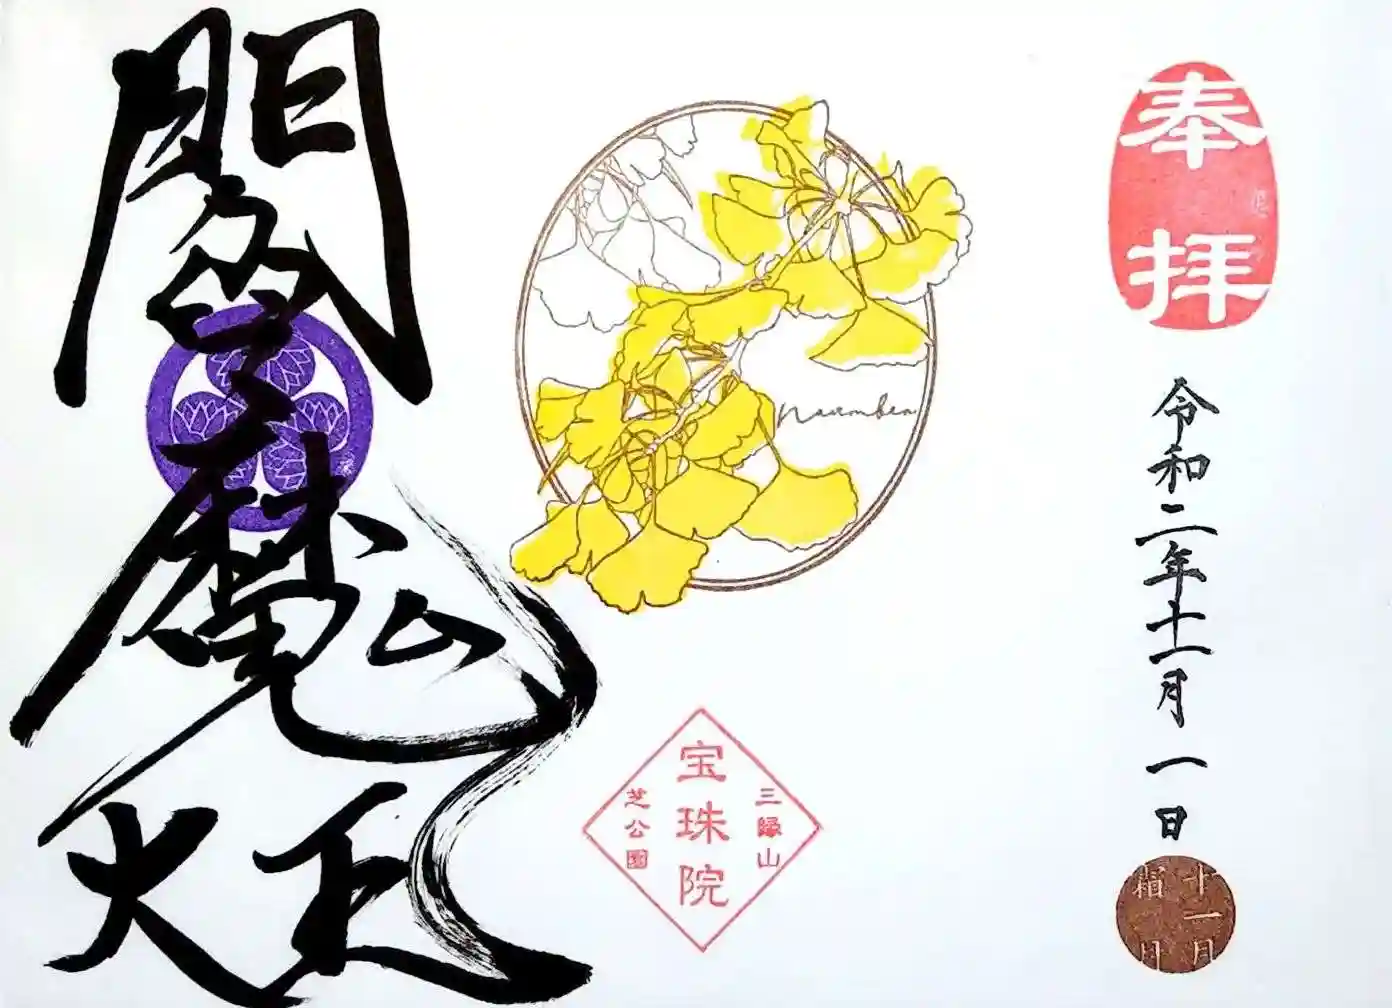 奉拝
令和二年十一月一日
十一月
霜月
November
三縁山
宝珠院
芝公園
閻魔大王